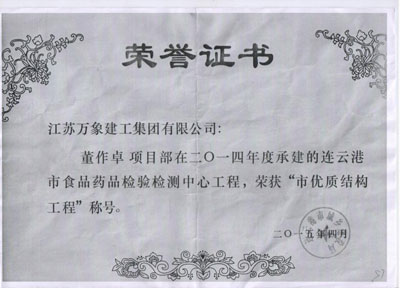 荣誉证书
江苏万象建工集团有限公司:
董作卓 项目部在二〇一四年度承建的连云港
市食品药品检验检测中心工程，荣获“市优质结构
工程”称号。
二〇一五年四月